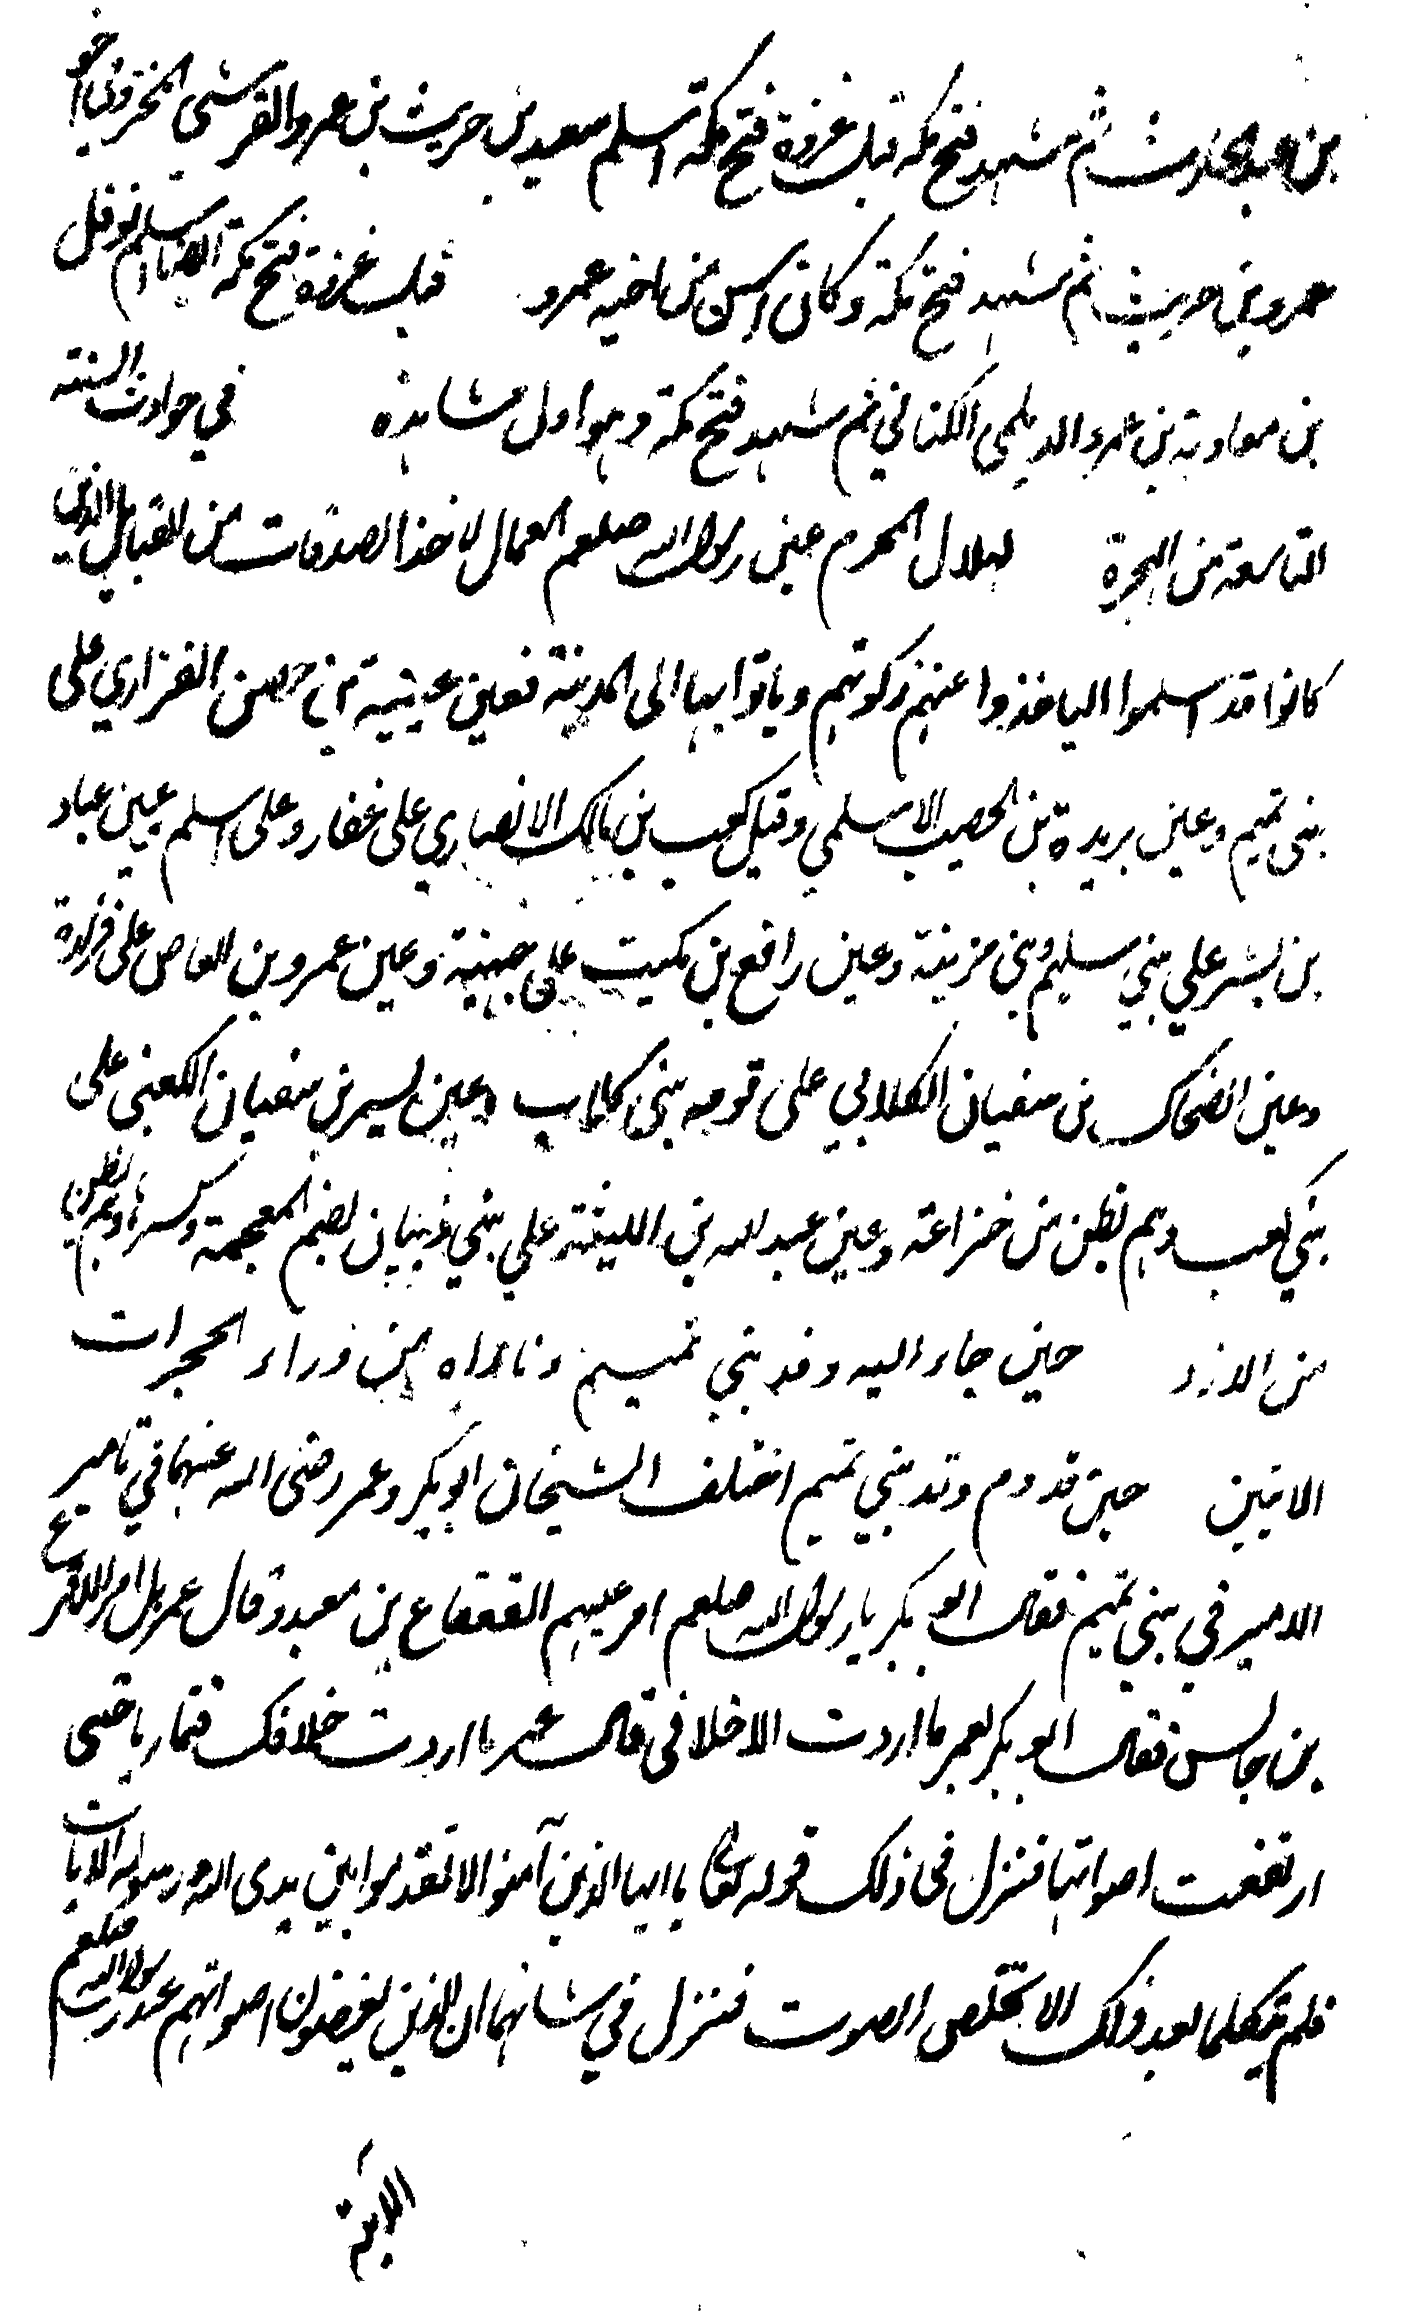 بن عبد الحارث ثم شهد فتح مكة قبل غزوة فتح مكة اسلم سعيد بن حريث بن عمرو القرشي المخزومي اخو
عمرو بن حريث ثم شهد فتح مكة وكان اسن من اخيه عمرو قبل غزوة فتح مكة ايضا اسلم نوفل
بن معاوية بن عمرو الديلمي الكناني ثم شهد فتح مكة وهو اول مشاهده في حوادث السنة
التاسعة من الهجرة لهلال المحرم عين رسول الله صلعم العمال لاخذ الصدقات من القبايل الذين
كانوا قد اسلموا لياخذوا عنهم زكوتهم وياتوا بها الى المدينة فعين عيينة بن حصن الفزاري على
بنى تميم وعين بريدة بن الحصيب الاسلمي وقيل كعب بن مالك الانصاري على غفار وعلى اسلم عين عباد
بن بشر علي بني سليم وبني مزينة وعين رافع بن مكيث على جهينة وعين عمرو بن العاص على فزارة
وعين الضحاك بن سفيان الكلابي على قومه بنى كلاب وعين بسر بن سفيان الكعبى على
بني كعب وهم بطن من خزاعة وعين عبد الله بن اللتبية علي بني ذبيان بضم المعجمة وكسرها وهم بطن
من الازد حين جاء اليه وفد بني تميم وناداه من وراء الحجرات
الاتيين حين قدوم وفد بني تميم اختلف الشيخان ابو بكر وعمر رضى الله عنهما في تامير
الامير في بني تميم فقال ابو بكر يا رسول الله صلعم امر عليهم القعقاع بن معبد وقال عمر بل امر الاقرع
بن حابس فقال ابو بكر لعمر ما اردت الا خلافى قال عمر ما اردت خلافك فتماريا حتى
ارتفعت اصواتهما فنزل فى ذلك قوله تعالى يا ايها الذين آمنوا لا تقدموا بين يدى الله ورسوله الايات
فلم يتكلما بعد ذلك الا بخفض الصوت فنزل في شانهما ان الذين يغضون اصواتهم عند رسول الله صلعم
الاية